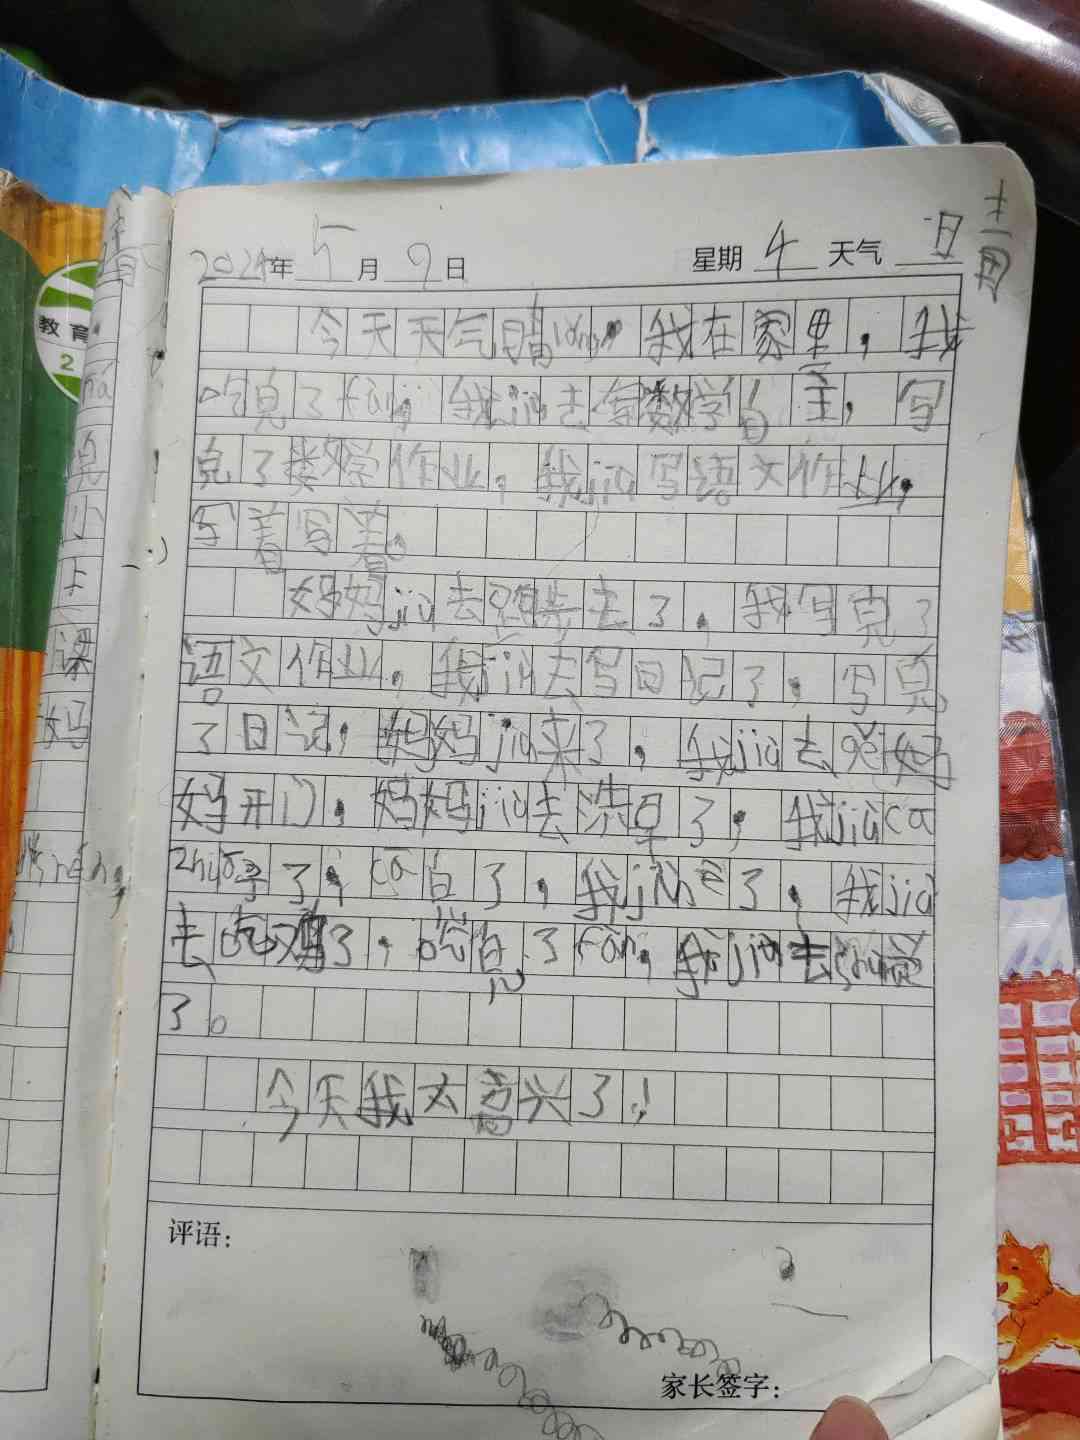 2024年5月9日 星期4 天气晴
今天天气晴lǎng,我在家里,我
吃完了fàn,我jiù去写数学作业,写
完了数学作业,我jiù写语文作业,
写着写着。
妈妈jiù去先去了,我写完了
语文作业,我jiù去写日记了,写完
了日记,妈妈jiù来了,我jiù去给妈
妈开门,妈妈jiù去洗早了,我jiùcā
zhuō子了,cā完了,我jiù了,我jiù
去吃鸡了,吃完了fàn,我jiù去shuì觉
了。
今天我太高兴了!
评语:
家长签字:
教育
2
课
妈